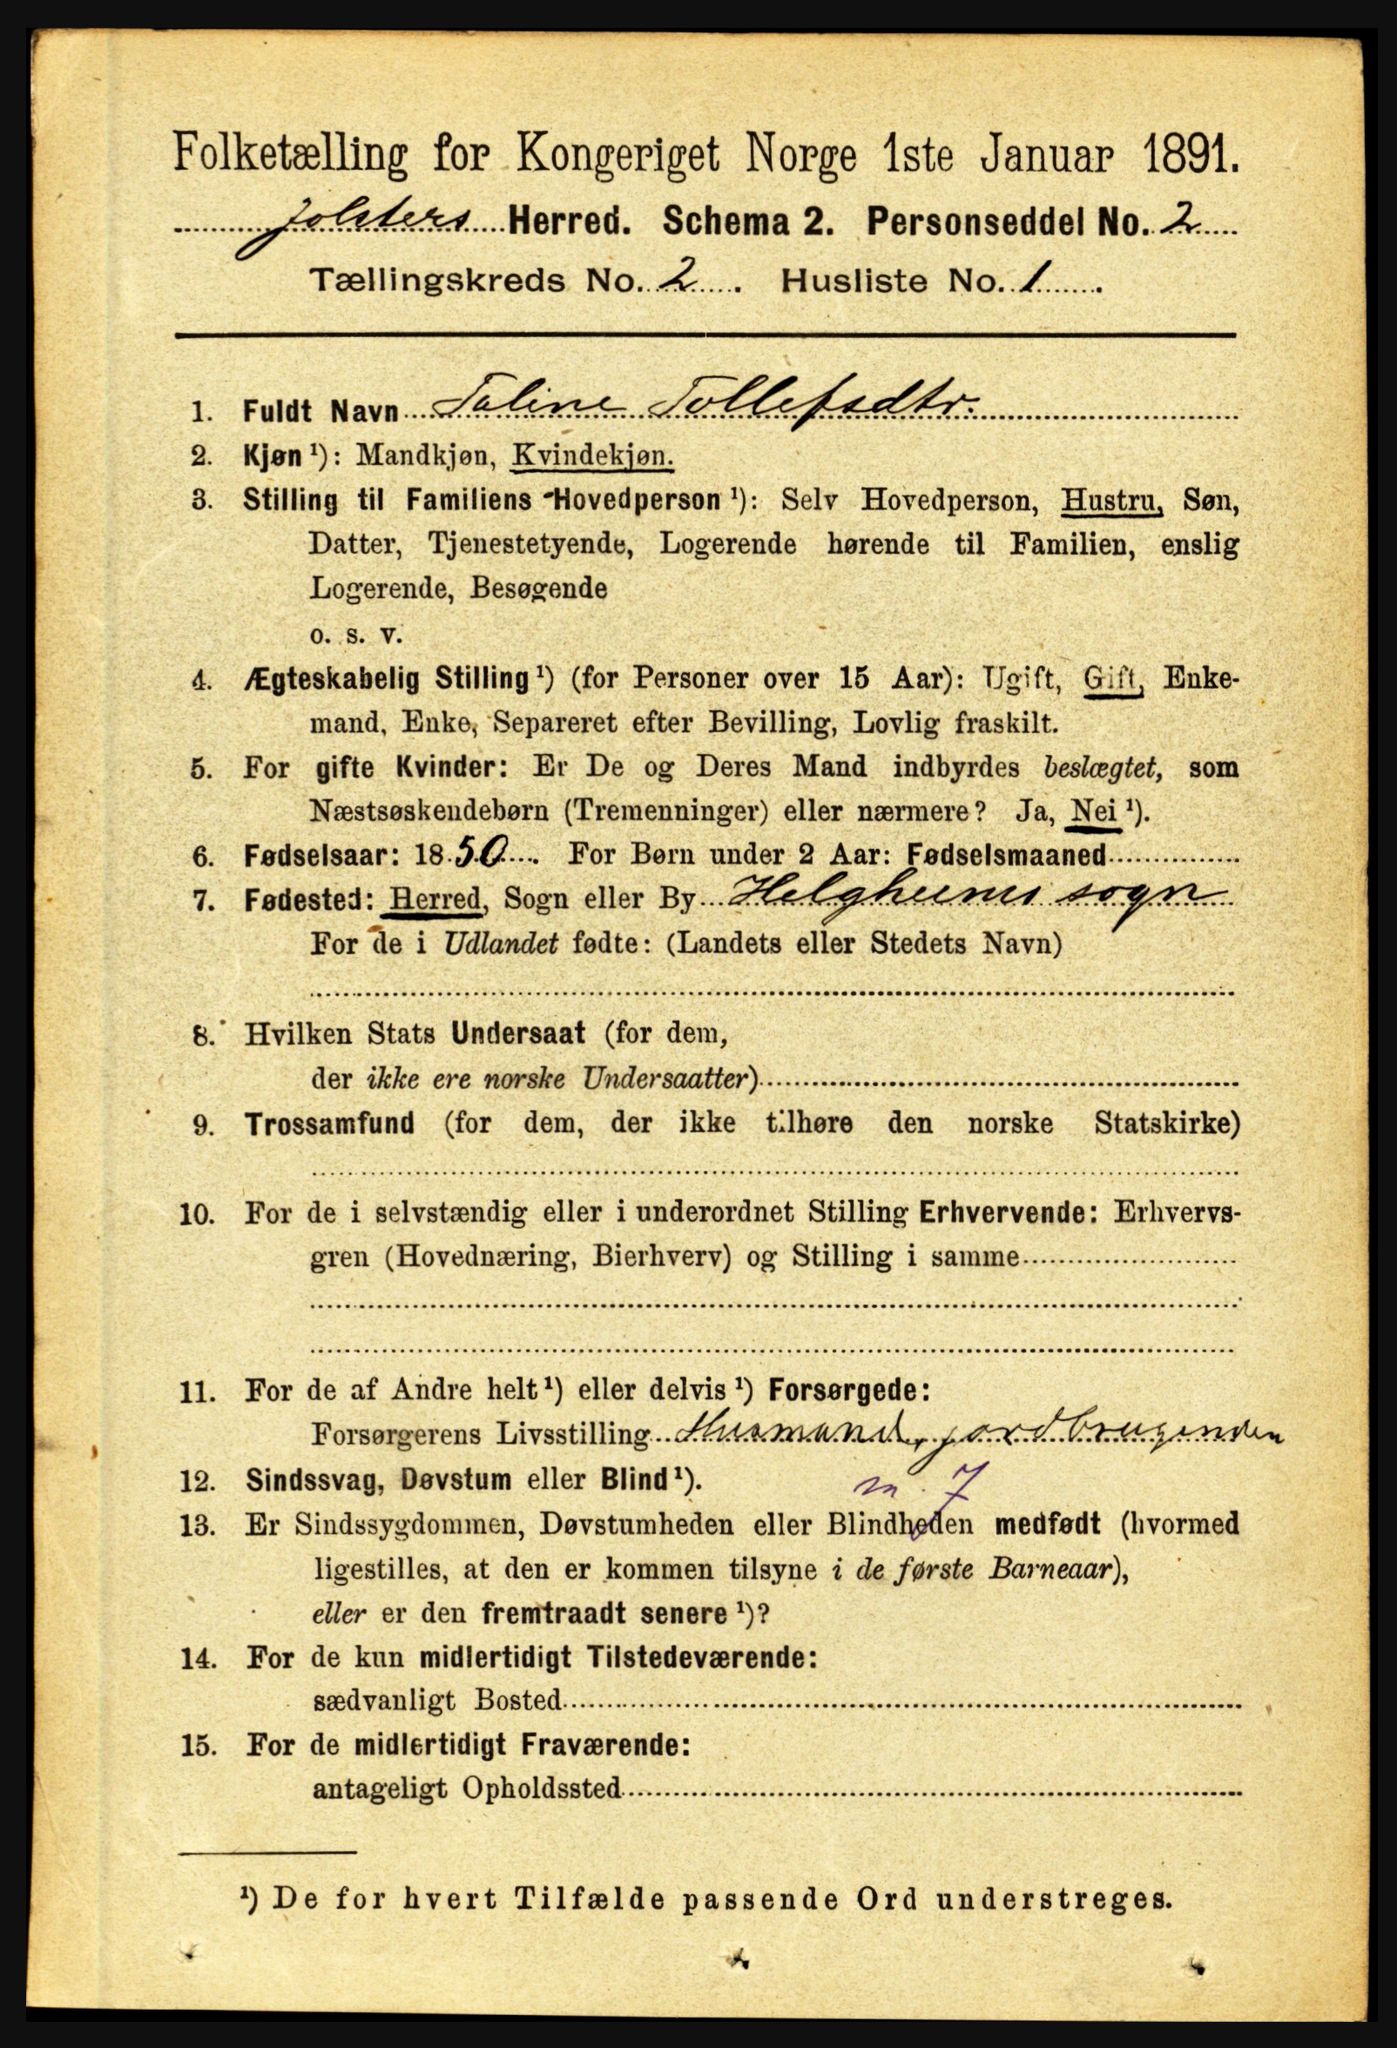 Folketælling for Kongeriget Norge 1ste Januar 1891.
Jolsters Herred. Schema 2. Personseddel No. 2
Tællingskreds No. 2. Husliste No. 1.
1. Fuldt Navn Taline Tollefsdtr.
2. Kjøn ¹): Mandkjøn, Kvindekjøn.
3. Stilling til Familiens Hovedperson ¹): Selv Hovedperson, Hustru, Søn,
Datter, Tjenestetyende, Logerende hørende til Familien, enslig
Logerende, Besøgende
o. s. v.
4. Ægteskabelig Stilling ¹) (for Personer over 15 Aar): Ugift, Gift, Enke-
mand, Enke, Separeret efter Bevilling, Lovlig fraskilt.
5. For gifte Kvinder: Er De og Deres Mand indbyrdes beslægtet, som
Næstsøskendebørn (Tremenninger) eller nærmere? Ja, Nei ¹).
6. Fødselsaar: 1850. For Børn under 2 Aar: Fødselsmaaned
7. Fødested: Herred, Sogn eller By Helgheims sogn
For de i Udlandet fødte: (Landets eller Stedets Navn)
8. Hvilken Stats Undersaat (for dem,
der ikke ere norske Undersaatter)
9. Trossamfund (for dem, der ikke tilhøre den norske Statskirke)
10. For de i selvstændig eller i underordnet Stilling Erhvervende: Erhvervs-
gren (Hovednæring, Bierhverv) og Stilling i samme
11. For de af Andre helt ¹) eller delvis ¹) Forsørgede:
Forsørgerens Livsstilling Husmand, jordbrugenden
12. Sindssvag, Døvstum eller Blind ¹). m. 7
13. Er Sindssygdommen, Døvstumheden eller Blindheden medfødt (hvormed
ligestilles, at den er kommen tilsyne i de første Barneaar),
eller er den fremtraadt senere ¹)?
14. For de kun midlertidigt Tilstedeværende:
sædvanligt Bosted
15. For de midlertidigt Fraværende:
antageligt Opholdssted
¹) De for hvert Tilfælde passende Ord understreges.